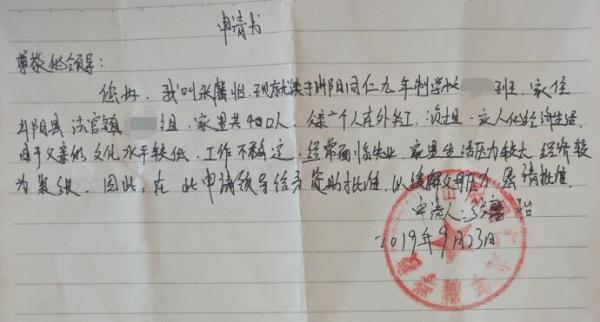 申请书
尊敬的领导：
您好，我叫张馨怡，现就读于山阳同仁九年制学校 班，家住
山阳县法官镇 组，家里共4口人，一个人在外务工，一家人的经济生活
由于父亲的文化水平较低，工作不稳定，经常面临失业，家里生活压力较大，经济较
为紧张，因此，在此申请领导给予资助批准，以缓解父母压力，恳请批准。
申请人：张馨怡
2019年9月23日